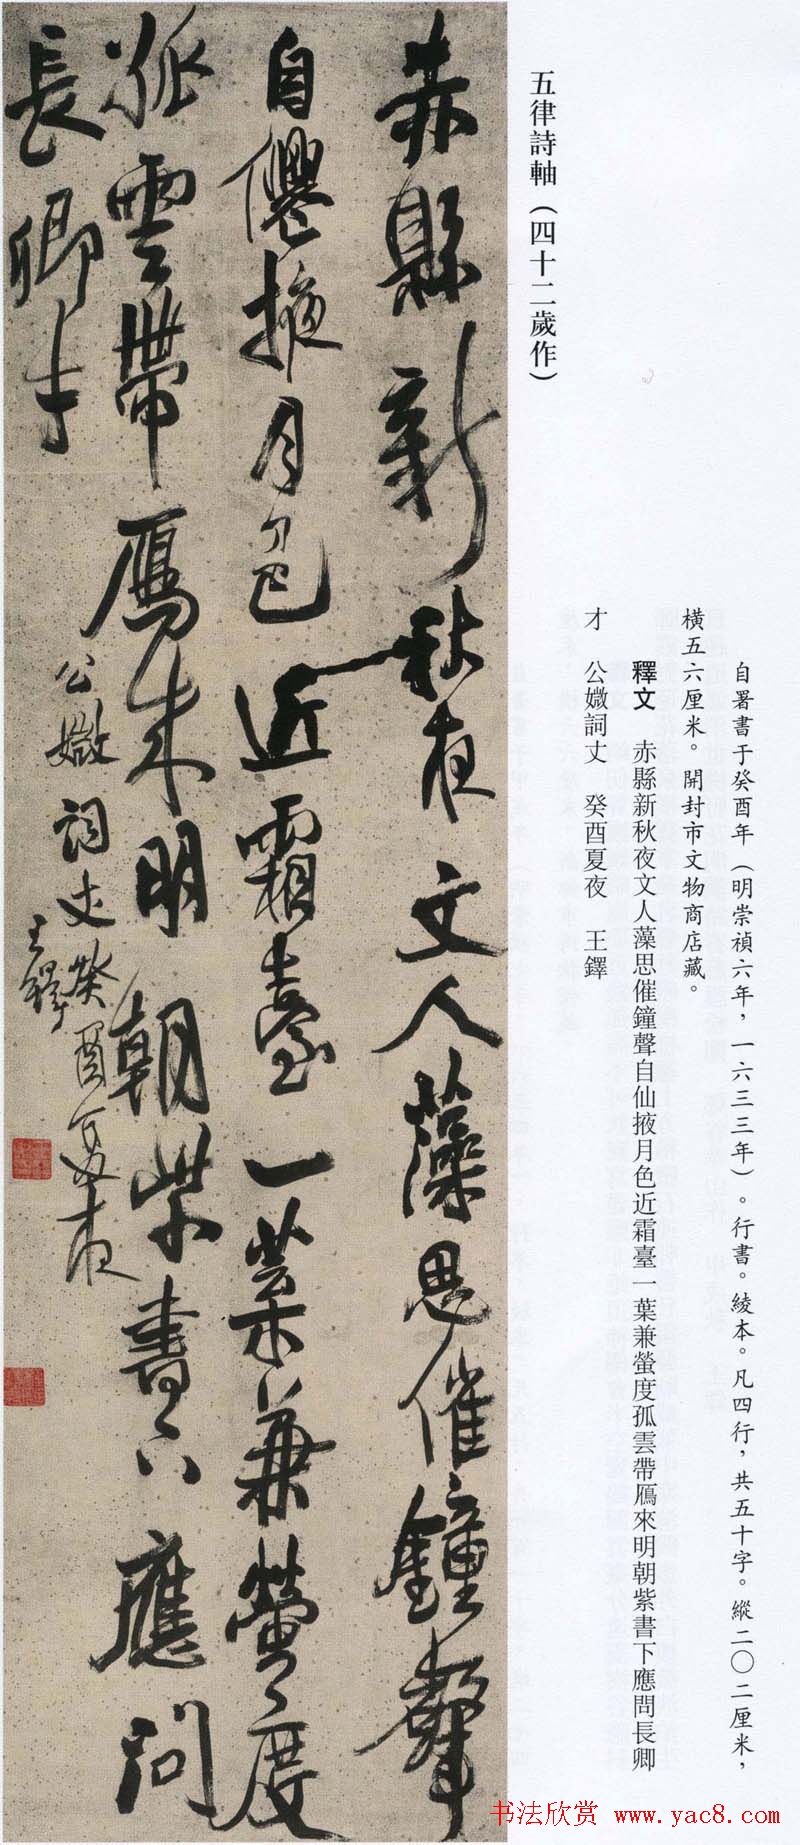 五律詩軸（四十二歲作）
自署書于癸酉年（明崇禎六年，一六三三年）。行書。綾本。凡四行，共五十字。縱二〇二厘米，
橫五六厘米。開封市文物商店藏。
釋文　赤縣新秋夜文人藻思催鐘聲自仙掖月色近霜臺一葉兼螢度孤雲帶鴈來明朝紫書下應問長卿
才　公媺詞丈　癸酉夏夜　王鐸
赤縣新秋夜文人藻思催鐘聲
自僊掖月色近霜臺一葉兼螢度
孤雲帶鴈來明朝紫書下應問
長卿才
公媺詞丈癸酉夏夜
王鐸
书法欣赏 www.yac8.com